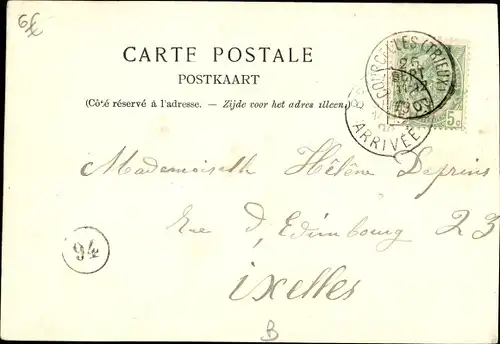 CARTE POSTALE
POSTKAART
(Côté réservé à l'adresse. — Zijde voor het adres alleen.)
COURCELLES (TRIEUX)
ARRIVÉE
5c
Mademoiselle Hélène Deprins
Rue d'Edimbourg 23
Ixelles
94
B